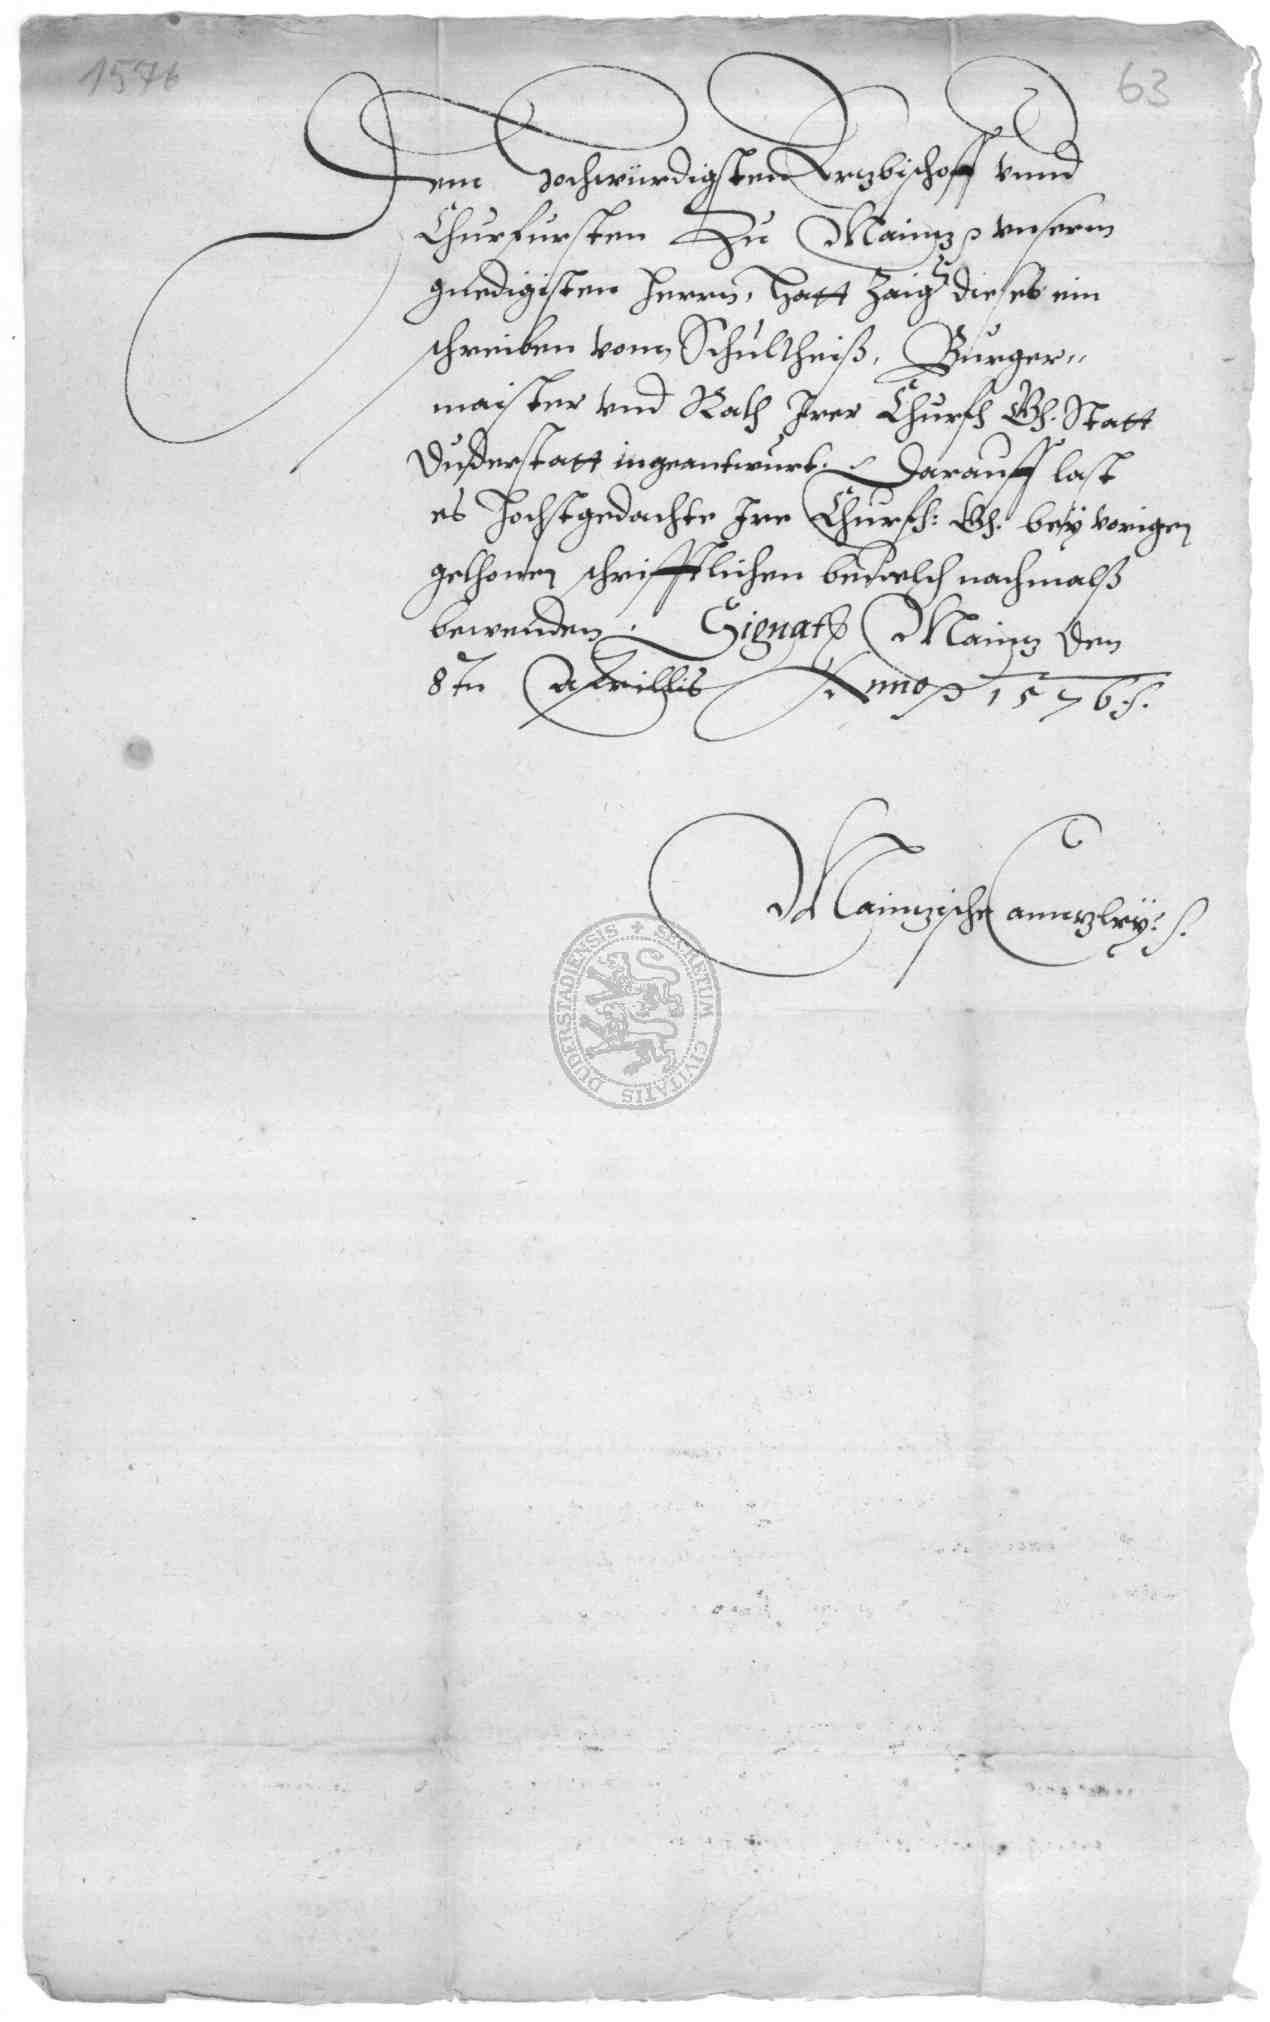 1576
63
Dem Hochwürdigsten Ertzbischoff vnnd
Churfursten Zu Maintz vnserm
gnedigisten Herrn, hatt Zaigr dieses ein
schreiben vonn Schultheiß, Burger„
maister vnd Rath Irer Churf. G. Statt
Duderstatt ingeantwurt. Darauff last
es Hochstgedachte Ire Churf: G. bey vorigen
gethonen schrifftlichen beuelch nachmalß
bewenden. Signat. Maintz den
8tn Aprillis Anno 1576.
Maintzische Canntzley.
SECRETUM CIVITATIS DUDERSTADIENSIS